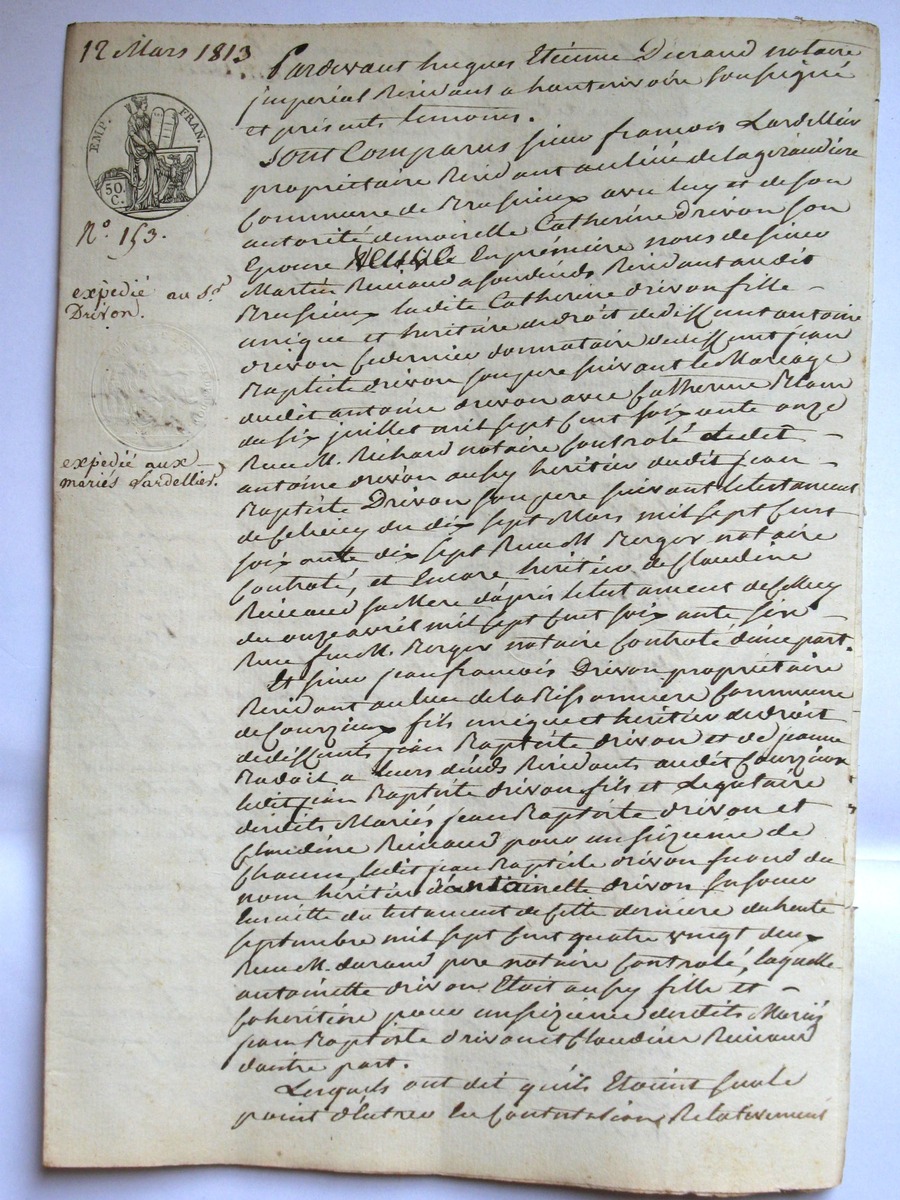 12 Mars 1813
EMP. FRAN.
50. C.
N.° 153.
expedié au S.r
Drivon.
expedié aux
mariés Lardellier.
Pardevant hugues Etiénne Durand notaire
jmperial Résidant a hauterivoire soussigné
et présents temoins.
Sont Comparus sieur françois Lardellier
propriétaire Résidant au lieu de lagiraudiére
Commune de Brussieux avec luy et de son
autorité demoiselle Catherine drivon son
Epouse veuve En prémiére nous de sieur
Martin Réinaud a son décès Résidant audit
Brussieux ladite Catherine drivon fille
unique et heritière de droit de deffunt antoine
drivon Ce dernier donnataire de deffunt jean
Baptiste drivon son pere suivant le Mariage
dudit antoine drivon avec Catherine
du six juillet mil sept Cent soixante onze
Reçu M. Richard notaire Controlé ledit
antoine drivon aussy heritier dudit jean
Baptiste Drivon son pere suivant le testament
de Celuicy du dix sept Mars mil sept Cent
soixante dix sept Reçu M Berger notaire
Controlé, et Encore héritier de Claudine
Réinaud sa Mere d'après le testament de
du onze avril mil sept Cent soixante six
Reçu feu M. Berger notaire Controlé d'une part.
Et sieur jean françois Drivon propriétaire
Résidant au lieu de la Commune
de Courzieux fils unique et héritier de droit
de deffunts jean Baptiste drivon et de jeanne
a leurs décès Résidants audit Courzieux
ledit jean Baptiste drivon fils et Legataire
desdits Mariés jean Baptiste drivon et
Claudine Réinaud pour un sizieme de
Chacun, ledit jean Baptiste drivon second du
nom héritier d'antoinette drivon sa soeur
Ensuitte du testament de Cette derniere du trente
septembre mil sept Cent quatre vingt deux
Reçu M. durand pere notaire Controlé, laquelle
antoinette drivon Etoit aussy fille et
Cohéritiere pour un sizieme desdits Mariés
jean Baptiste drivon et Claudine Réinaud
d'autre part.
Lesquels ont dit qu'ils Etoient sur le
point d'Entrer En Contestation Relativement